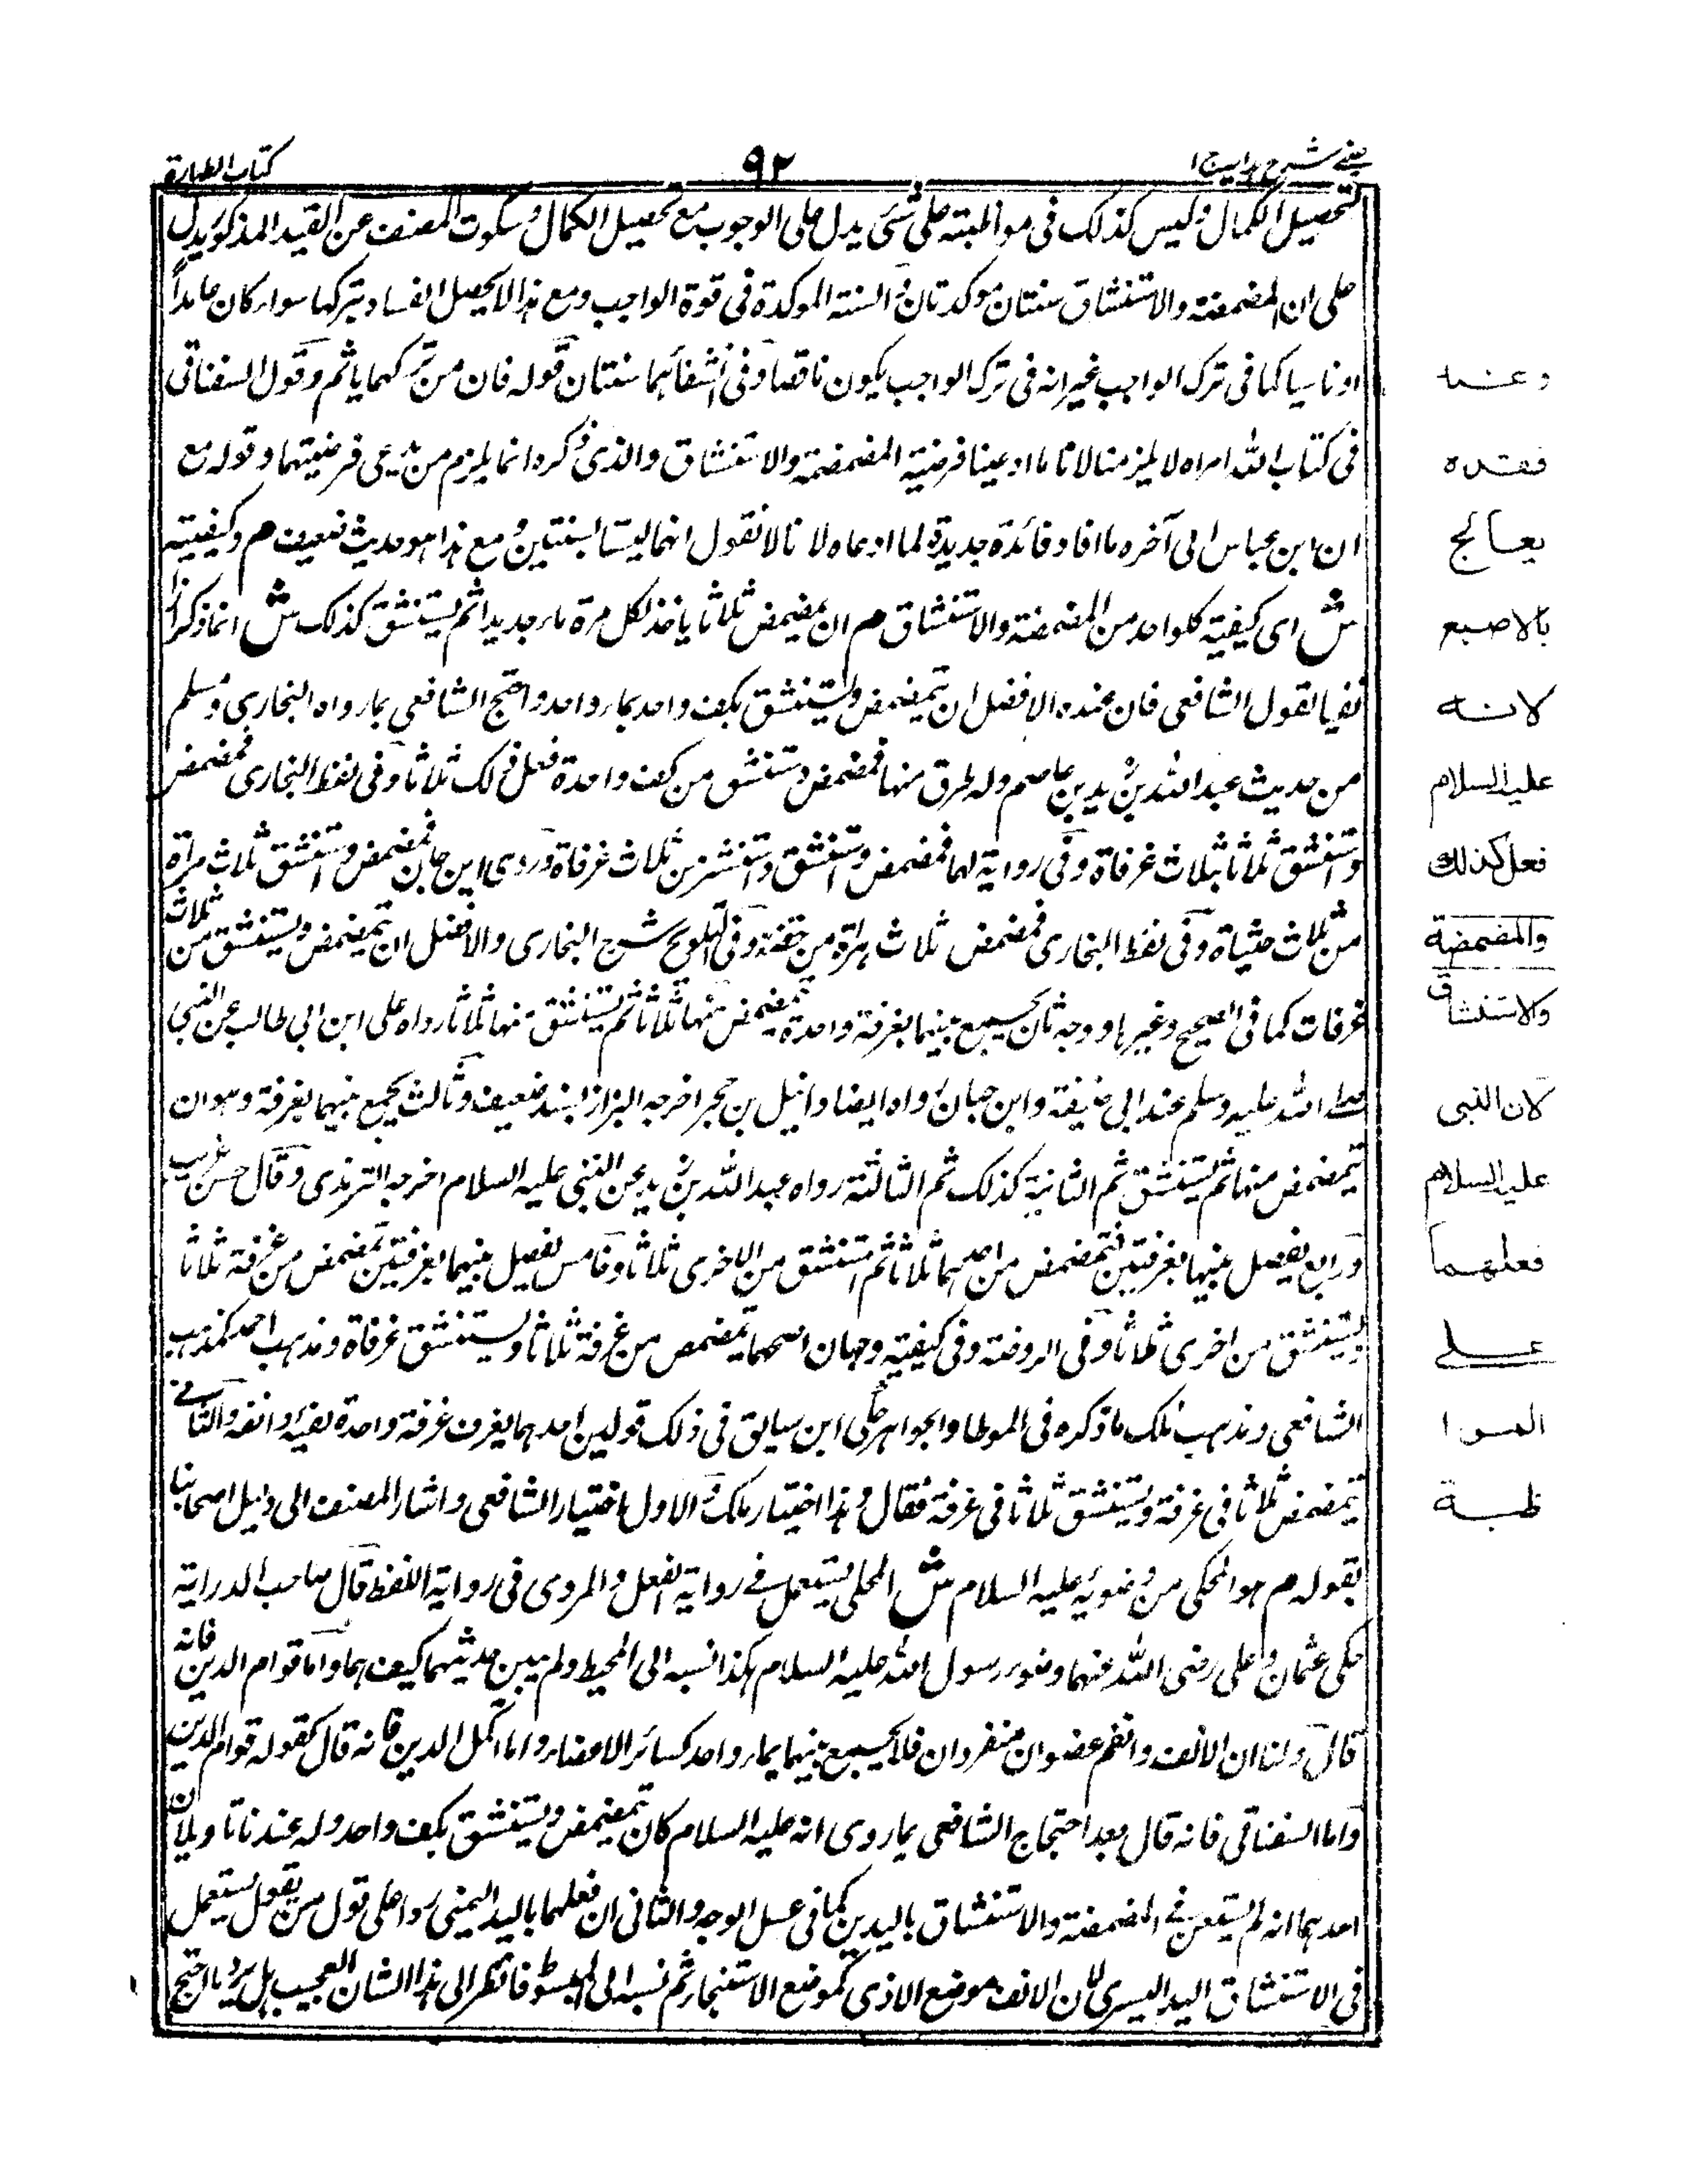 عینی شرح ہدایہ ج ۱
۹۲
کتاب الطہارة
لتحصیل الکمال ولیس کذلک فی مواظبتہ علی شئ یدل علی الوجوب مع تحصیل الکمال وسکوت المصنف عن القید المذکور یدل
علی ان المضمضة والاستنشاق سنتان موکدتان والسنة الموکدة فی قوة الواجب ومع ہذا لا یحصل الفساد بترکہا سواء کان عامداً
او ناسیا کما فی ترک الواجب غیر انہ فی ترک الواجب یکون ناقصا وفی الشفائہما سنتان قولہ فان من ترکہما یاثم وقول السغناقی
فی کتاب اللہ امراہ لا یلزمنا لانا ما ادعینا فرضیة المضمضة والاستنشاق والذی ذکرہ انما یلزم من یدعی فرضیتہما وقولہ مع
ان ابن عباس الی آخرہ ما افاد فائدة جدیدة لما ادعاہ لانا لا نقول انہما لیستا بسنتین ومع ہذا ہو حدیث ضعیف م وکیفیتہ
ش ای کیفیة کل واحد من المضمضة والاستنشاق م ان یمضمض ثلاثا یاخذ لکل مرة ماء جدیدا ثم یستنشق کذلک ش انما ذکر ہذا
نفیا لقول الشافعی فان عندہ الافضل ان یتمضمض ویستنشق بکف واحد بماء واحد واحتج الشافعی بما رواہ البخاری ومسلم
من حدیث عبد اللہ بن زید بن عاصم ولہ طرق منہا فمضمض واستنشق من کف واحدة فعل ذلک ثلاثا وفی لفظ البخاری فمضمض
واستنشق ثلاثا بثلاث غرفاة وفی روایة لہما فمضمض واستنشق واستنثر من ثلاث غرفاة وروی ابن حبان فمضمض واستنشق ثلاث مراة
من ثلاث حثیاة وفی لفظ البخاری فمضمض ثلاث مراة من حفنة وفی التلویح شرح البخاری والافضل ان یتمضمض ویستنشق من ثلاث
غرفات کما فی الصحیح وغیرہا ووجہ ثان یجمع بینہما بغرفة واحدة یتمضمض منہا ثلاثا ثم یستنشق منہا ثلاثا رواہ علی ابن ابی طالب عن النبی
صلے اللہ علیہ وسلم عند ابی خزیمة وابن حبان ورواہ ایضا وائیل بن حجر اخرجہ البزاز بسند ضعیف وثالث یجمع بینہما بغرفة وہو ان
یتمضمض منہا ثم یستنشق ثم الثانیة کذلک ثم الثالثة رواہ عبد اللہ بن زید عن النبی علیہ السلام اخرجہ الترمذی وقال حسن غریب
ورابع یفصل بینہما بغرفتین فیتمضمض من احدہما ثلاثا ثم استنشق من الاخری ثلاثا وخامس یفصل بینہما بغرفتین یتمضمض من غرفة ثلاثا
ویستنشق من اخری ثلاثا وفی الروضة وفی کیفیتہ وجہان اصحہما یتمضمض من غرفة ثلاثا ویستنشق غرفاة ومذہب احمد کمذہب
الشافعی ومذہب ملک ما ذکرہ فی الموطا والجواہر حکی ابن سابق فی ذلک قولین احدہما یغرف غرفة واحدة لفیہ وانفہ والثانے
یتمضمض ثلاثا فی غرفة ویستنشق ثلاثا فی غرفة فقال وہذا اختیار ملک والاول اختیار الشافعی واشار المصنف الی دلیل اصحابنا
بقولہ م ہو المحکی من وضوئہ علیہ السلام ش المحکی یستعمل فے روایة الفعل والمروی فی روایة اللفظ قال صاحب الدرایة
حکی عثمان وعلی رضی اللہ عنہما وضوء رسول اللہ علیہ السلام ہکذا نسبہ الی المحیط ولم یبین حدیثہما کیف ہما واما قوام الدین فانہ
قال ولنا ان الانف والفم عضوان منفردان فلا یجمع بینہما بماء واحد کسائر الاعضاء واما اکمل الدین فانہ قال کقولہ قوام الدین
واما السغناقی فانہ قال بعد احتجاج الشافعی بما روی انہ علیہ السلام کان یتمضمض ویستنشق بکف واحد ولہ عندنا تاویلان
احدہما انہ لم یستعن فے المضمضة والاستنشاق بالیدین کما فی غسل الوجہ والثانی ان فعلہما بالید الیمنی ردا علی قول من یقول یستعمل
فی الاستنشاق الید الیسری لان الانف موضع الاذی کموضع الاستنجاء ثم نسبہ الی المبسوط فانظر الی ہذا الشان العجیب ہل یرد بما احتج
وعند
فقده
يعالج
بالاصبع
لانه
عليه السلام
فعل كذلك
والمضمضة
والاستنشاق
لان النبى
عليه السلام
فعلهما
على
الموا
ظبة